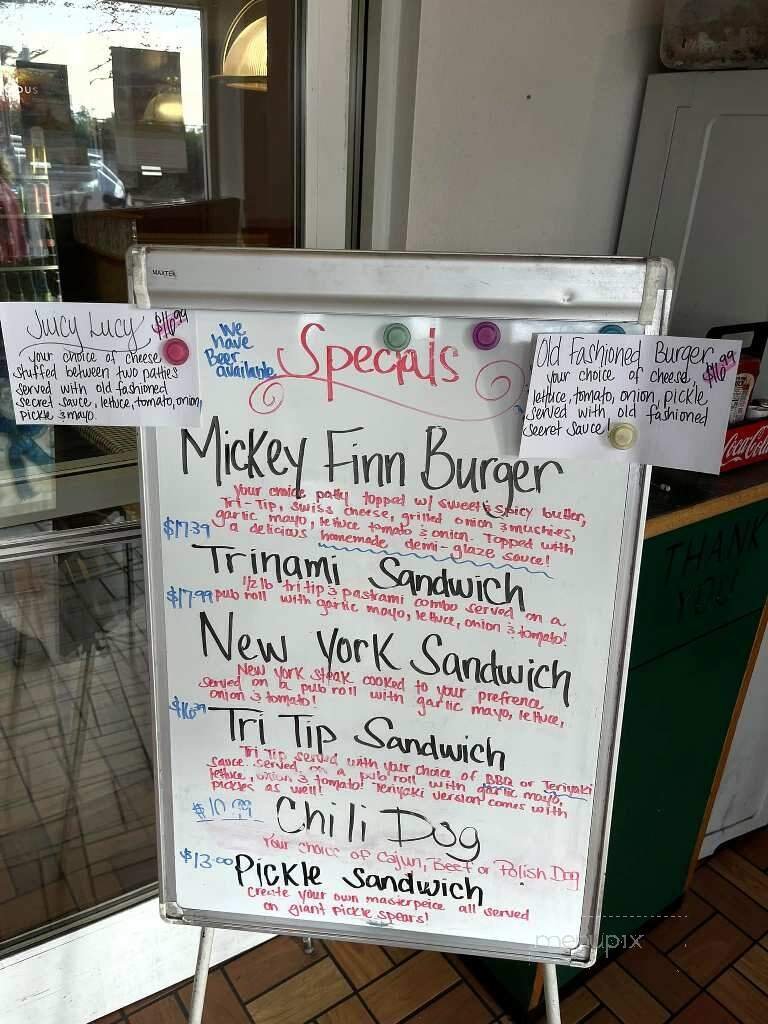 CIOUS
MAXTEK
Juicy Lucy $16.99
your choice of cheese
stuffed between two patties
served with old fashioned
secret sauce, lettuce, tomato, onion,
pickle & mayo.
We
have
Beer
available
Specials
Old Fashioned Burger
$16.99
your choice of cheese,
lettuce, tomato, onion, pickle
served with old fashioned
secret sauce!
Coca-Cola
THANK
YOU!
Mickey Finn Burger
Your choice patty topped w/ sweet & spicy butter,
Tri-Tip, swiss cheese, grilled onion & mushies,
garlic mayo, lettuce tomato & onion. Topped with
$17.39
a delicious homemade demi-glaze sauce!
Trinami Sandwich
1/2 lb tri tip & pastrami combo served on a
$17.99 pub roll with garlic mayo, lettuce, onion & tomato!
New York Sandwich
New York steak cooked to your prefrence
served on a pub roll with garlic mayo, lettuce,
onion & tomato!
$16.39
Tri Tip Sandwich
Tri Tip served with your choice of BBQ or Teriyaki
sauce. served on a pub roll with garlic mayo,
lettuce, onion & tomato! Teriyaki version comes with
pickles as well!
$10.99
Chili Dog
Your choice of Cajun, Beef or Polish Dog
$13.00
Pickle Sandwich
Create your own masterpeice all served
on giant pickle spears!
menupix